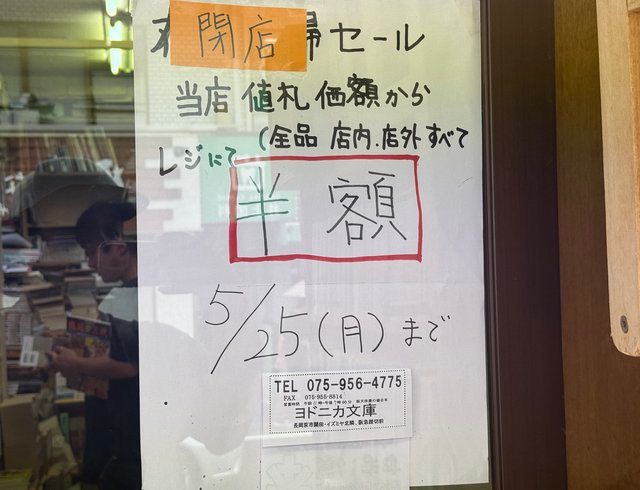 閉店 セール
当店 値札 価額から
レジにて (全品 店内.店外すべて
半額
5/25(月)まで
TEL 075-956-4775
FAX 075-955-8814
ヨドニカ文庫